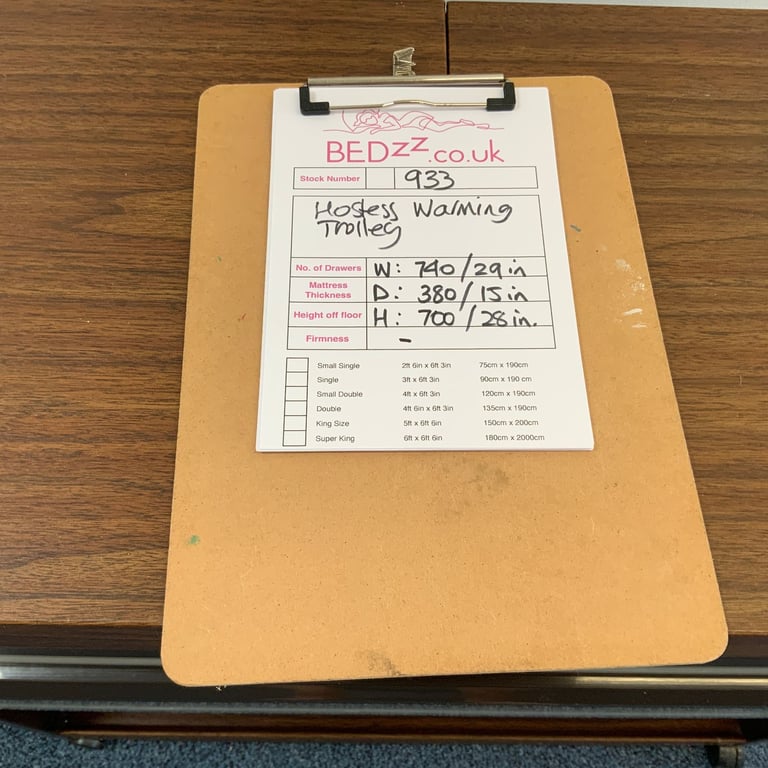 BEDzz.co.uk
Stock Number 933
Hostess Warming
Trolley
No. of Drawers W: 740/29 in
Mattress Thickness D: 380/15 in
Height off floor H: 700/28 in.
Firmness -
Small Single 2ft 6in x 6ft 3in 75cm x 190cm
Single 3ft x 6ft 3in 90cm x 190 cm
Small Double 4ft x 6ft 3in 120cm x 190cm
Double 4ft 6in x 6ft 3in 135cm x 190cm
King Size 5ft x 6ft 6in 150cm x 200cm
Super King 6ft x 6ft 6in 180cm x 2000cm